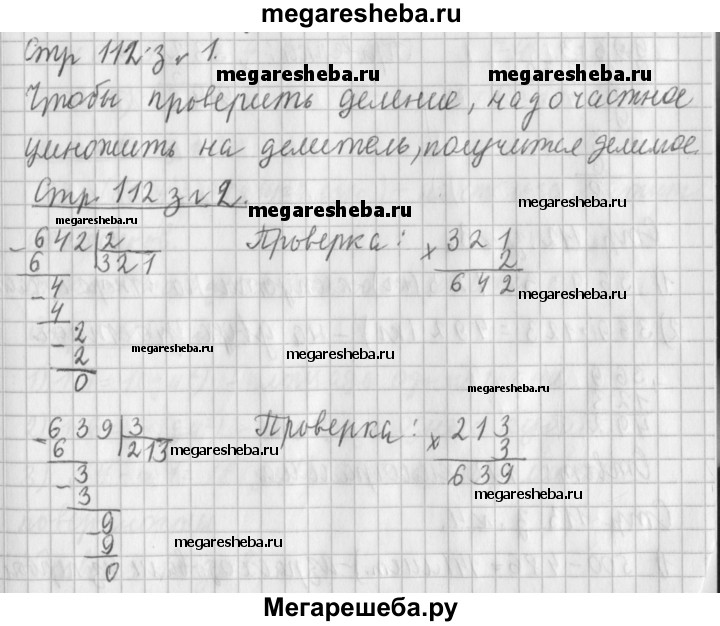 megaresheba.ru
Стр 112 з № 1.
megaresheba.ru megaresheba.ru
Чтобы проверить деление, надо частное
умножить на делитель, получится делимое.
Стр. 112 з № 2.
megaresheba.ru megaresheba.ru megaresheba.ru
- 642 | 2 Проверка: × 321
6 | 321 2
- 4 642
4
- 2
2
0
megaresheba.ru megaresheba.ru
megaresheba.ru
- 639 | 3 Проверка: × 213
6 | 213 3
- 3 639
3
- 9
9
0
megaresheba.ru
megaresheba.ru
megaresheba.ru
Мегарешеба.ру